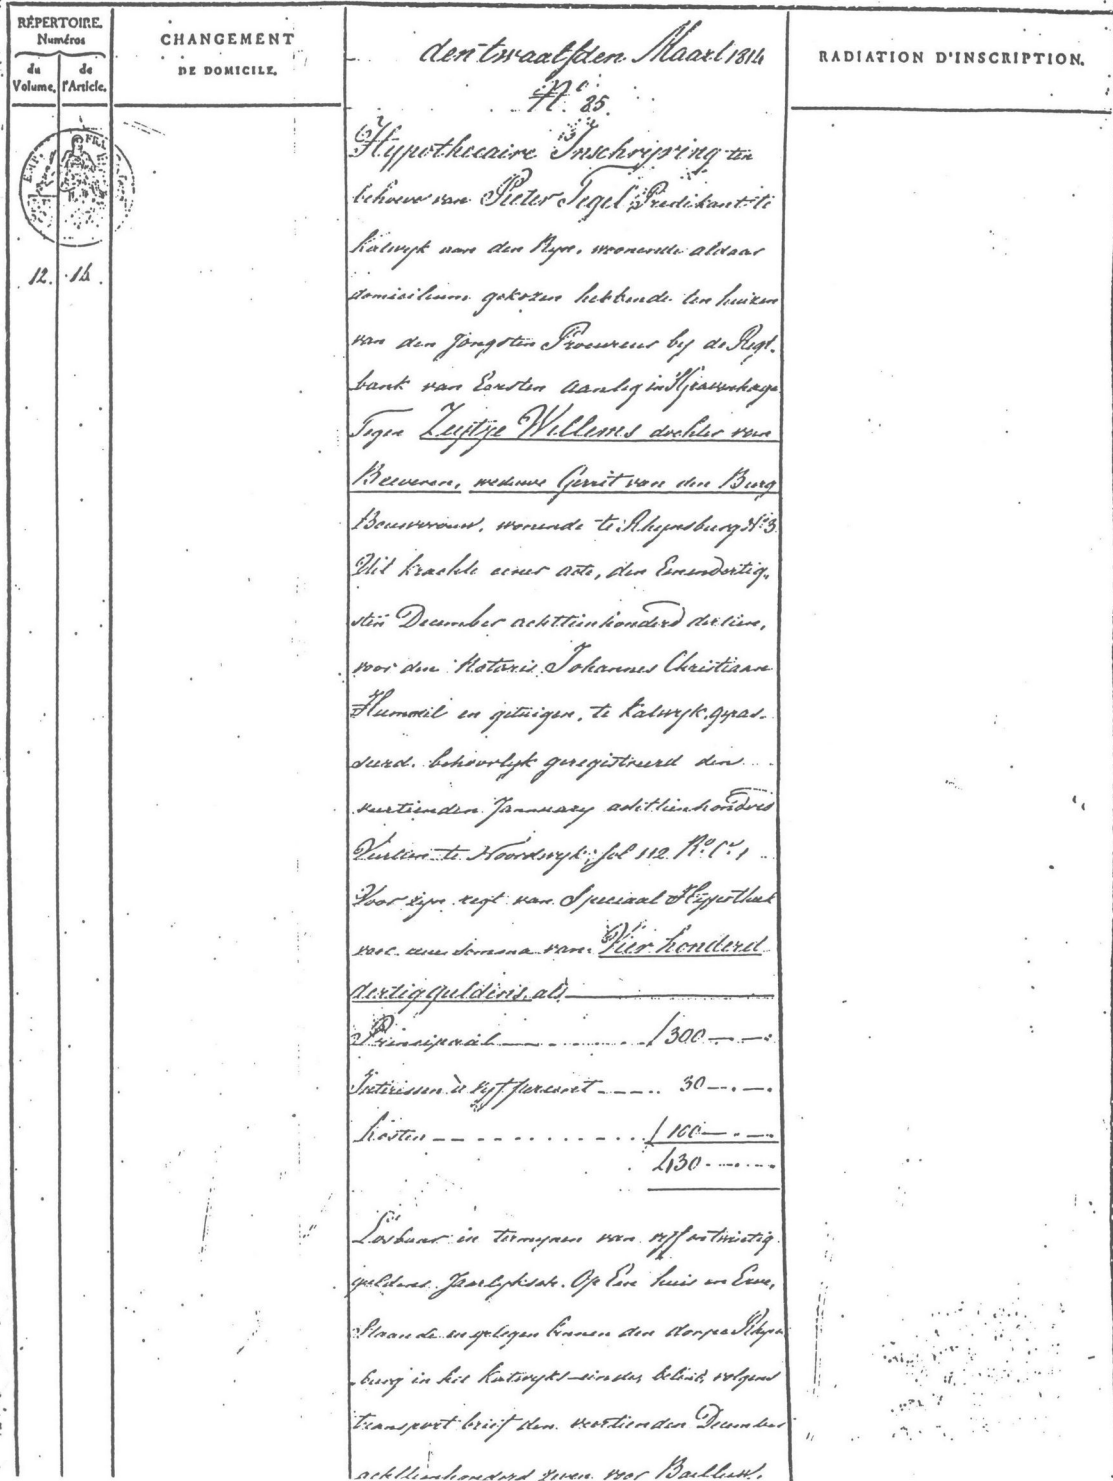 RÉPERTOIRE.
Numéros
du Volume.
de l'Article.
CHANGEMENT
DE DOMICILE.
RADIATION D'INSCRIPTION.
EMP. FRA
12. 14.
den twaalfden Maart 1814
N.o 85.
Hypothecaire Inschrijving ten
behoeve van Pieter Tegel Predikant te
Katwyk aan den Ryn, woonende aldaar
domicilium gekozen hebbende ten huizen
van den Jongsten Procureur by de Regt-
bank van Eersten Aanleg in 'sGravenhage
Tegen Zeytje Willems dochter van
Beeveren, weduwe Gerrit van den Burg
Bouwvrouw, wonende te Rhynsburg No 3
Uit krachte eener acte, den Eenendertig-
sten December achttienhonderd dertien,
voor den Notaris Johannes Christiaan
Hummel en getuigen, te Katwyk, gepas-
seerd. behoorlyk geregistreerd den
veertienden January achttienhonderd
Veertien te Noordwyk; fol 112 Ro Co 1
Voor zyn regt van Speciaal Hypotheek
voor eene somma van Vier honderd
dertig guldens, als
Principaal f 300 -.-.
Interessen à vyf percent 30 -.-.
kosten f 100 -.-.
430 -.-.
Losbaar in termynen van vyf en twintig
guldens Jaarlyks. Op Een huis en Erve,
Staande en gelegen binnen den dorpe Rhyns
burg in het Katwyks einde, belend, volgens
transport brief den veertienden December
achttienhonderd zeven voor Bailluw,